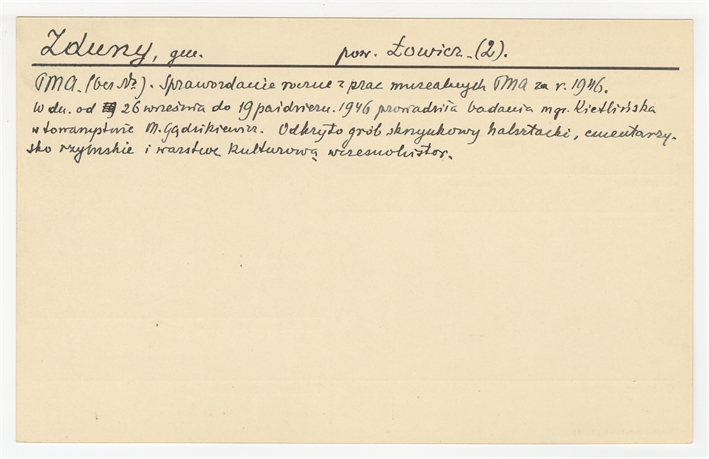 Zduny, gm. pow. Łowicz. (2).
PMA. (bez Nr.). Sprawozdanie roczne z prac muzealnych PMA za r. 1946.
W dn. od 26 września do 19 październ. 1946 prowadziła badania mgr. Kietlińska
w towarzystwie M. Gądzikiewicz. Odkryto grób skrzynkowy halsztacki, cmentarzy-
sko rzymskie i warstwę kulturową wczesnohistor.